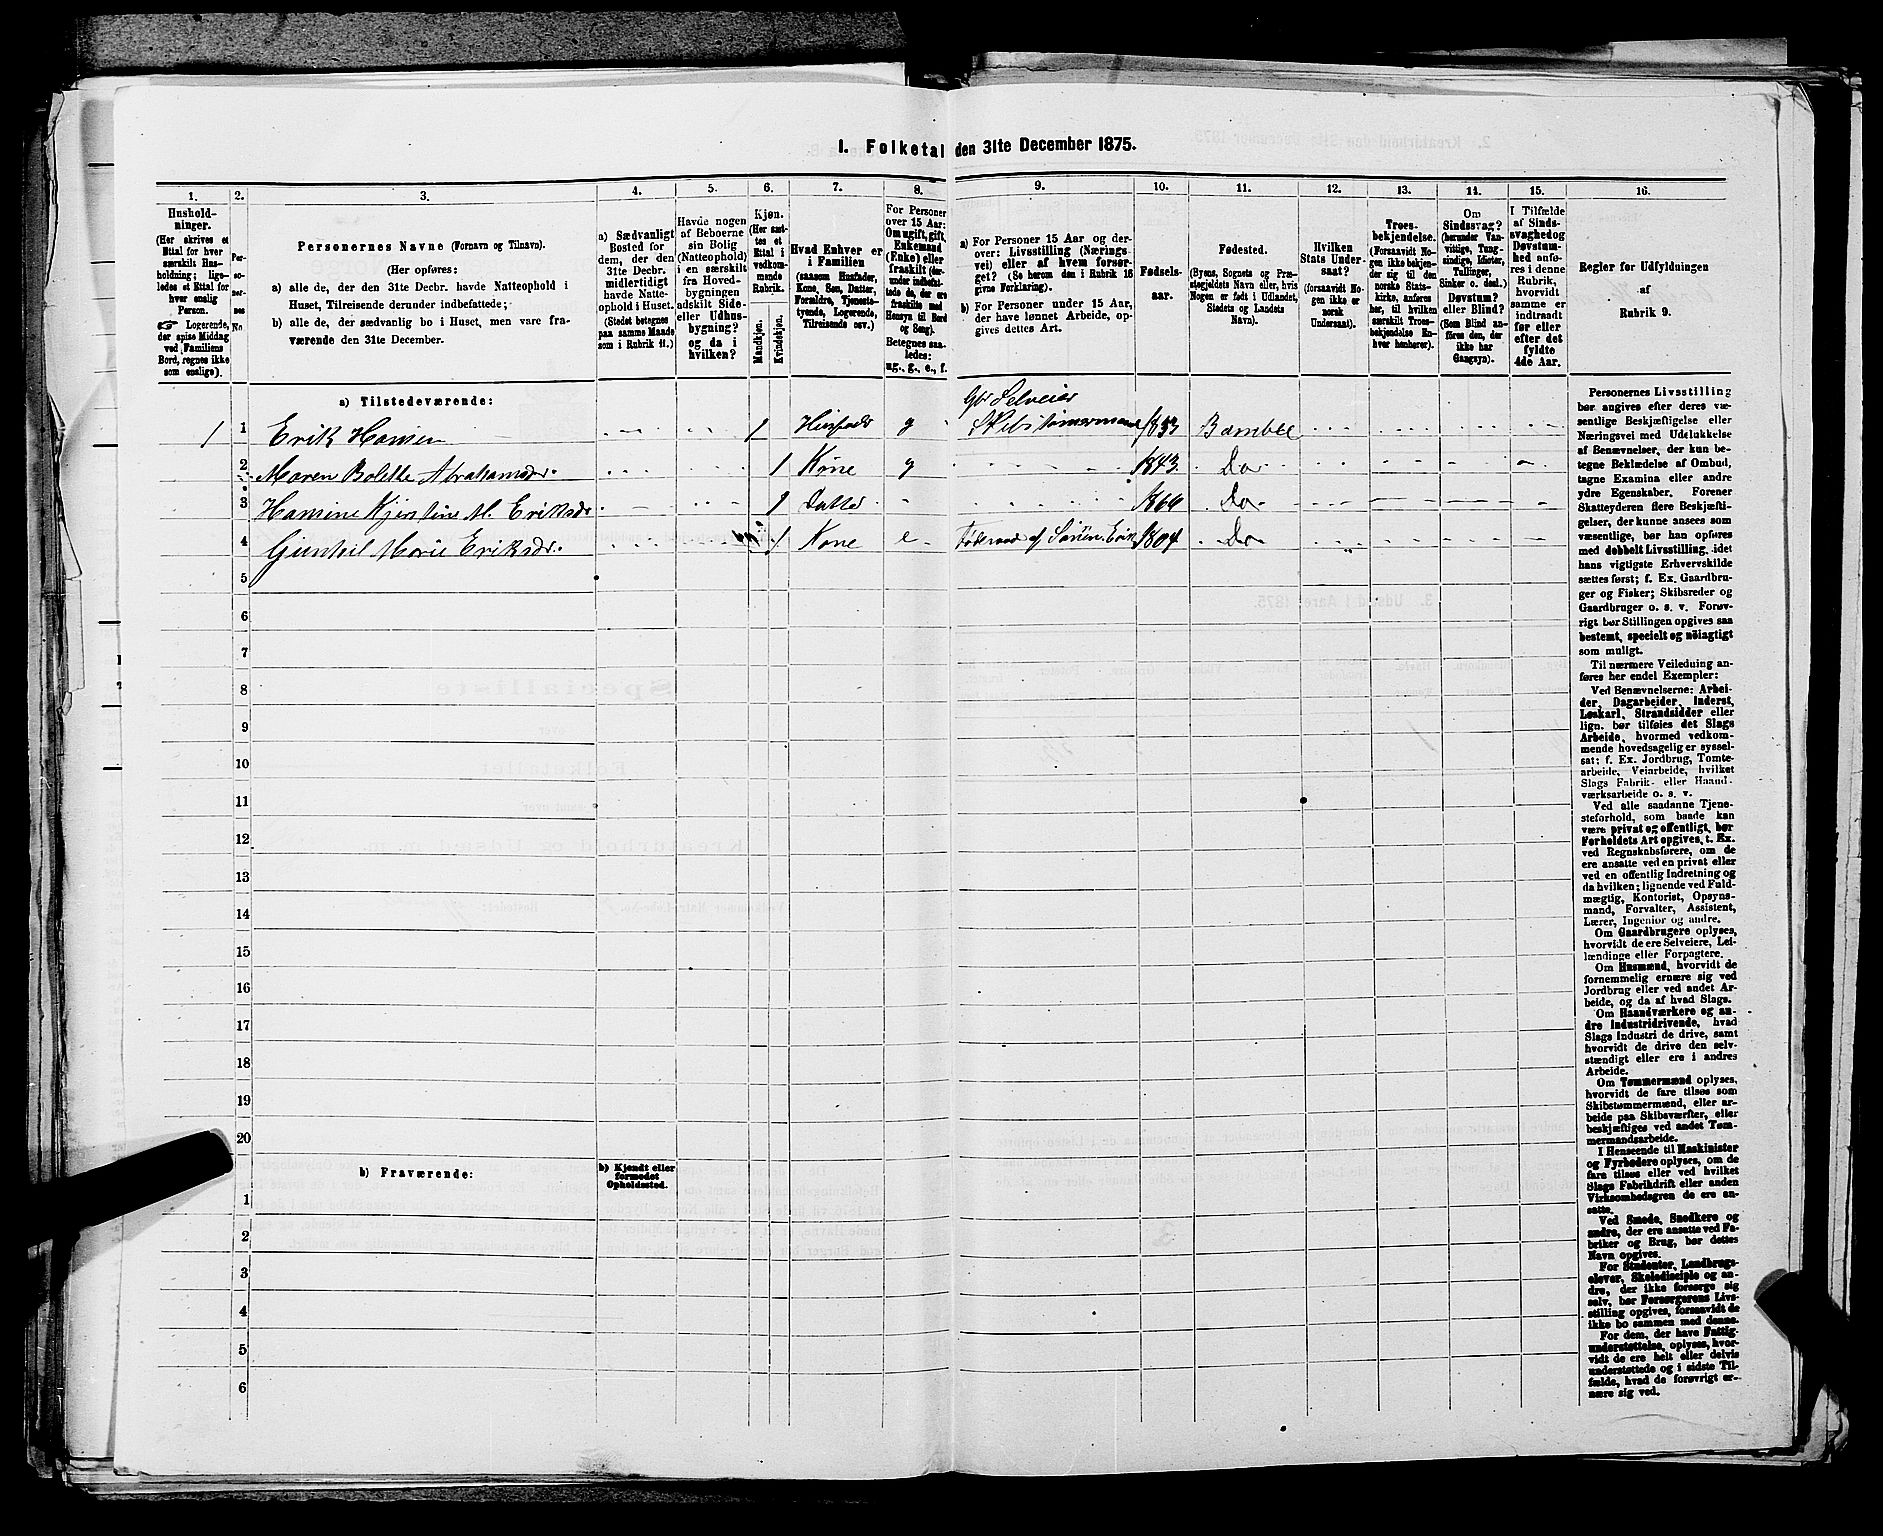 1. Folketal den 31te December 1875.
1. 2. 3. 4. 5. 6. 7. 8. 9. 10. 11. 12. 13. 14. 15. 16.
Hushold-
ninger.
(Her skrives et
Ettal for hver
særskilt Hus-
holdning; lige-
ledes et Ettal for
hver enslig
Person.
☞ Logerende,
der spise Middag
ved Familiens
Bord, regnes ikke
som enslige).
Per-
so-
ner-
nes
No
Personernes Navne (Fornavn og Tilnavn).
(Her opføres:
a) alle de, der den 31te Decbr. havde Natteophold i
Huset, Tilreisende derunder indbefattede;
b) alle de, der sædvanlig bo i Huset, men vare fra-
værende den 31te December.
a) Sædvanligt
Bosted for
dem, der den
31te Decbr.
midlertidigt
havde Natte-
ophold i Huset.
(Stedet betegnes
paa samme Maade
som i Rubrik 11.)
Havde nogen
af Beboerne
sin Bolig
(Natteophold)
i en særskilt
fra Hoved-
bygningen
adskilt Side-
eller Udhus-
bygning?
og da i
hvilken?
Kjøn.
(Her sæt-
tes et
Ettal i
vedkom-
mende
Rubrik.
Mandkjøn.
Kvindekjøn.
Hvad Enhver er
i Familien
(saasom Husfader,
Kone, Søn, Datter,
Forældre, Tjeneste-
tyende, Logerende,
Tilreisende osv.)
For Personer
over 15 Aar:
Om ugift, gift,
Enkemand
(Enke) eller
fraskilt (der-
under indbefat-
tede de, der ere
fraskilte med
Hensyn til Bord
og Seng).
Betegnes saa-
ledes:
ug., g., e., f.
a) For Personer 15 Aar og der-
over: Livsstilling (Nærings-
vei) eller af hvem forsør-
get? (Se herom den i Rubrik 16
givne Forklaring).
b) For Personer under 15 Aar,
der have lønnet Arbeide, op-
gives dettes Art.
Fødsels-
aar.
Fødested.
(Byens, Sognets og Præ-
stegjeldets Navn eller, hvis
Nogen er født i Udlandet,
Stedets og Landets
Navn).
Hvilken
Stats Under-
saat?
(forsaavidt No-
gen ikke er
norsk
Undersaat).
Troes-
bekjendelse.
(Forsaavidt No-
gen ikke bekjen-
der sig til den
norske Stats-
kirke, anføres
her, til hvilken
særskilt Troes-
bekjendelse En-
hver henhører).
Om
Sindssvag?
(herunder Van-
vittige, Tung-
sindige, Idioter,
Tullinger,
Sinker o. desl.)
Døvstum?
eller Blind?
(Som Blind an-
føres den, der
ikke har
Gangsyn).
I Tilfælde
af Sinds-
svaghed og
Døvstum-
hed anfø-
res i denne
Rubrik,
hvorvidt
samme er
indtraadt
før eller
efter det
fyldte
4de Aar.
Regler for Udfyldningen
af
Rubrik 9.
a) Tilstedeværende:
Gbr Selveier
1 1 Erik Hansen 1 g Skibstømermand Bamble
2 Maren Bolette Abrahamsdr. 1 Kone g 1843 Do
3 Kjerstine M. Eriksdr 1 Datter 1866 Do
4 Marie Eriksdr. 1 Kone e 1804 Do
5
6
7
8
9
10
11
12
13
14
15
16
17
18
19
20
b) Fraværende:
b) Kjendt eller
formodet
Opholdssted.
1
2
3
4
5
6
Personernes Livsstilling
bør angives efter deres væ-
sentlige Beskjæftigelse eller
Næringsvei med Udelukkelse
af Benævnelser, der kun be-
tegne Beklædelse af Ombud,
tagne Examina eller andre
ydre Egenskaber. Forener
Skatteyderen flere Beskjæfti-
gelser, der kunne ansees som
væsentlige, bør han opføres
med dobbelt Livsstilling, idet
hans vigtigste Erhvervskilde
sættes først; f. Ex. Gaardbru-
ger og Fisker; Skibsreder og
Gaardbruger o. s. v. Forøv-
rigt bør Stillingen opgives saa
bestemt, specielt og nöiagtigt
som muligt.
Til nærmere Veiledning an-
føres her endel Exempler:
Ved Benævnelserne: Arbei-
der, Dagarbeider, Inderst,
Løskarl, Strandsidder eller
lign. bør tilføies det Slags
Arbeide, hvormed vedkom-
mende hovedsagelig er syssel-
sat; f. Ex. Jordbrug, Tomte-
arbeide, Veiarbeide, hvilket
Slags Fabrik- eller Haand-
værksarbeide o. s. v.
Ved alle saadanne Tjene-
steforhold, som baade kan
være privat og offentligt, bør
Forholdets Art opgives, t. Ex.
ved Regnskabsførere, om de
ere ansatte ved en privat eller
ved en offentlig Indretning og
da hvilken; lignende ved Fuld-
mægtig, Kontorist, Opsyns-
mand, Forvalter, Assistent,
Lærer, Ingeniør og andre.
Om Gaardbrugere oplyses,
hvorvidt de ere Selveiere, Lei-
lændinge eller Forpagtere.
Om Husmænd, hvorvidt de
fornemmelig ernære sig ved
Jordbrug eller ved andet Ar-
beide, og da af hvad Slags.
Om Haandværkere og an-
dre Industridrivende, hvad
Slags Industri de drive, samt
hvorvidt de drive den selv-
stændigt eller ere i andres
Arbeide.
Om Tømmermænd oplyses,
hvorvidt de fare tilsøs som
Skibstømmermænd, eller ar-
beide paa Skibsværfter, eller
beskjæftiges ved andet Tøm-
mermandsarbeide.
I Henseende til Maskinister
og Fyrbødere oplyses, om de
fare tilsøs eller ved hvilket
Slags Fabrikdrift eller anden
Virksomhedsgren de ere an-
satte.
Ved Smede, Snedkere og
andre, der ere ansatte ved Fa-
briker og Brug, bør dettes
Navn opgives.
For Studenter, Landbrugs-
elever, Skoledisciple og an-
dre, der ikke forsørge sig
selv, bør Forsørgerens Livs-
stilling opgives, forsaavidt de
ikke bo sammen med denne.
For dem, der have Fattig-
understøttelse, oplyses, hvor-
vidt de ere helt eller delvis
understøttede og i sidste Til-
fælde, hvad de forøvrigt er-
nære sig ved.